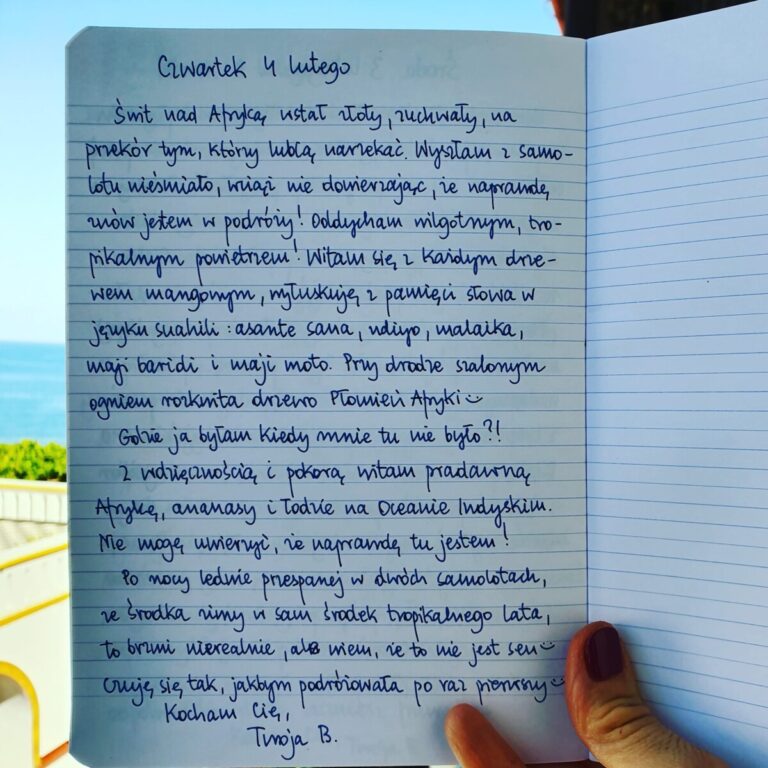 Czwartek 4 lutego
Świt nad Afryką wstał złoty, zuchwały, na
przekór tym, którzy lubią narzekać. Wyszłam z samo-
lotu nieśmiało, wciąż nie dowierzając, że naprawdę
znów jestem w podróży! Oddycham wilgotnym, tro-
pikalnym powietrzem! Witam się z każdym drze-
wem mangowym, wyłuskuję z pamięci słowa w
języku suahili : asante sana, ndiyo, malaika,
maji baridi i maji moto. Przy drodze szalonym
ogniem rozkwita drzewo Płomień Afryki
Gdzie ja byłam kiedy mnie tu nie było?!
Z wdzięcznością i pokorą witam pradawną
Afrykę, ananasy i łodzie na Oceanie Indyskim.
Nie mogę uwierzyć, że naprawdę tu jestem!
Po nocy ledwie przespanej w dwóch samolotach,
ze środka zimy w sam środek tropikalnego lata,
to brzmi nierealnie, ale wiem, że to nie jest sen
Czuję się tak, jakbym podróżowała po raz pierwszy
Kocham Cię,
Twoja B.